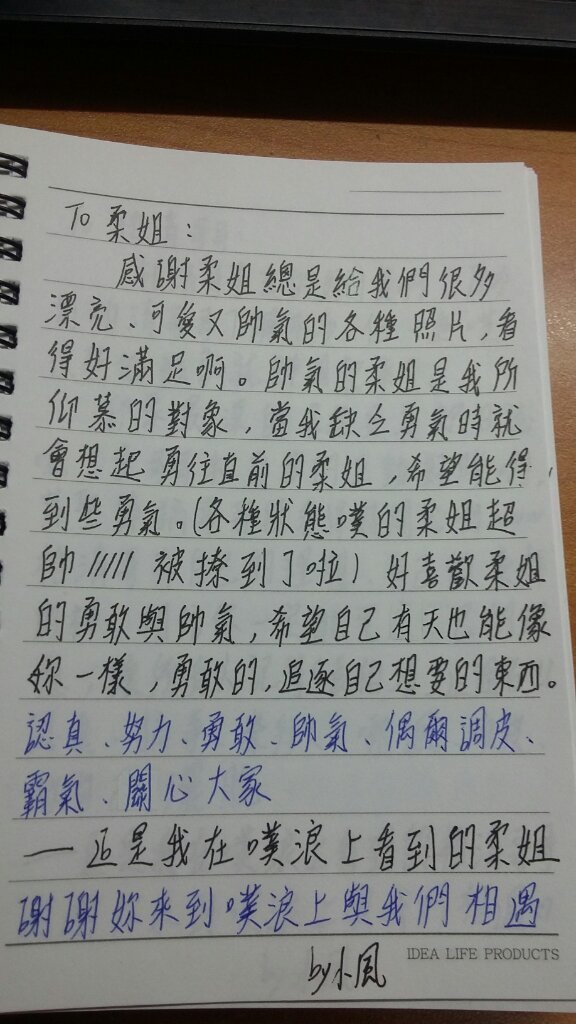 To 柔姐：
感謝柔姐總是給我們很多
漂亮、可愛又帥氣的各種照片，看
得好滿足啊。帥氣的柔姐是我所
仰慕的對象，當我缺乏勇氣時就
會想起勇往直前的柔姐，希望能得
到些勇氣。(各種狀態噗的柔姐超
帥///// 被撩到了啦) 好喜歡柔姐
的勇敢與帥氣，希望自己有天也能像
妳一樣，勇敢的，追逐自己想要的東西。
認真、努力、勇敢、帥氣、偶爾調皮、
霸氣、關心大家
——這是我在噗浪上看到的柔姐
謝謝妳來到噗浪上與我們相遇
by小風
IDEA LIFE PRODUCTS